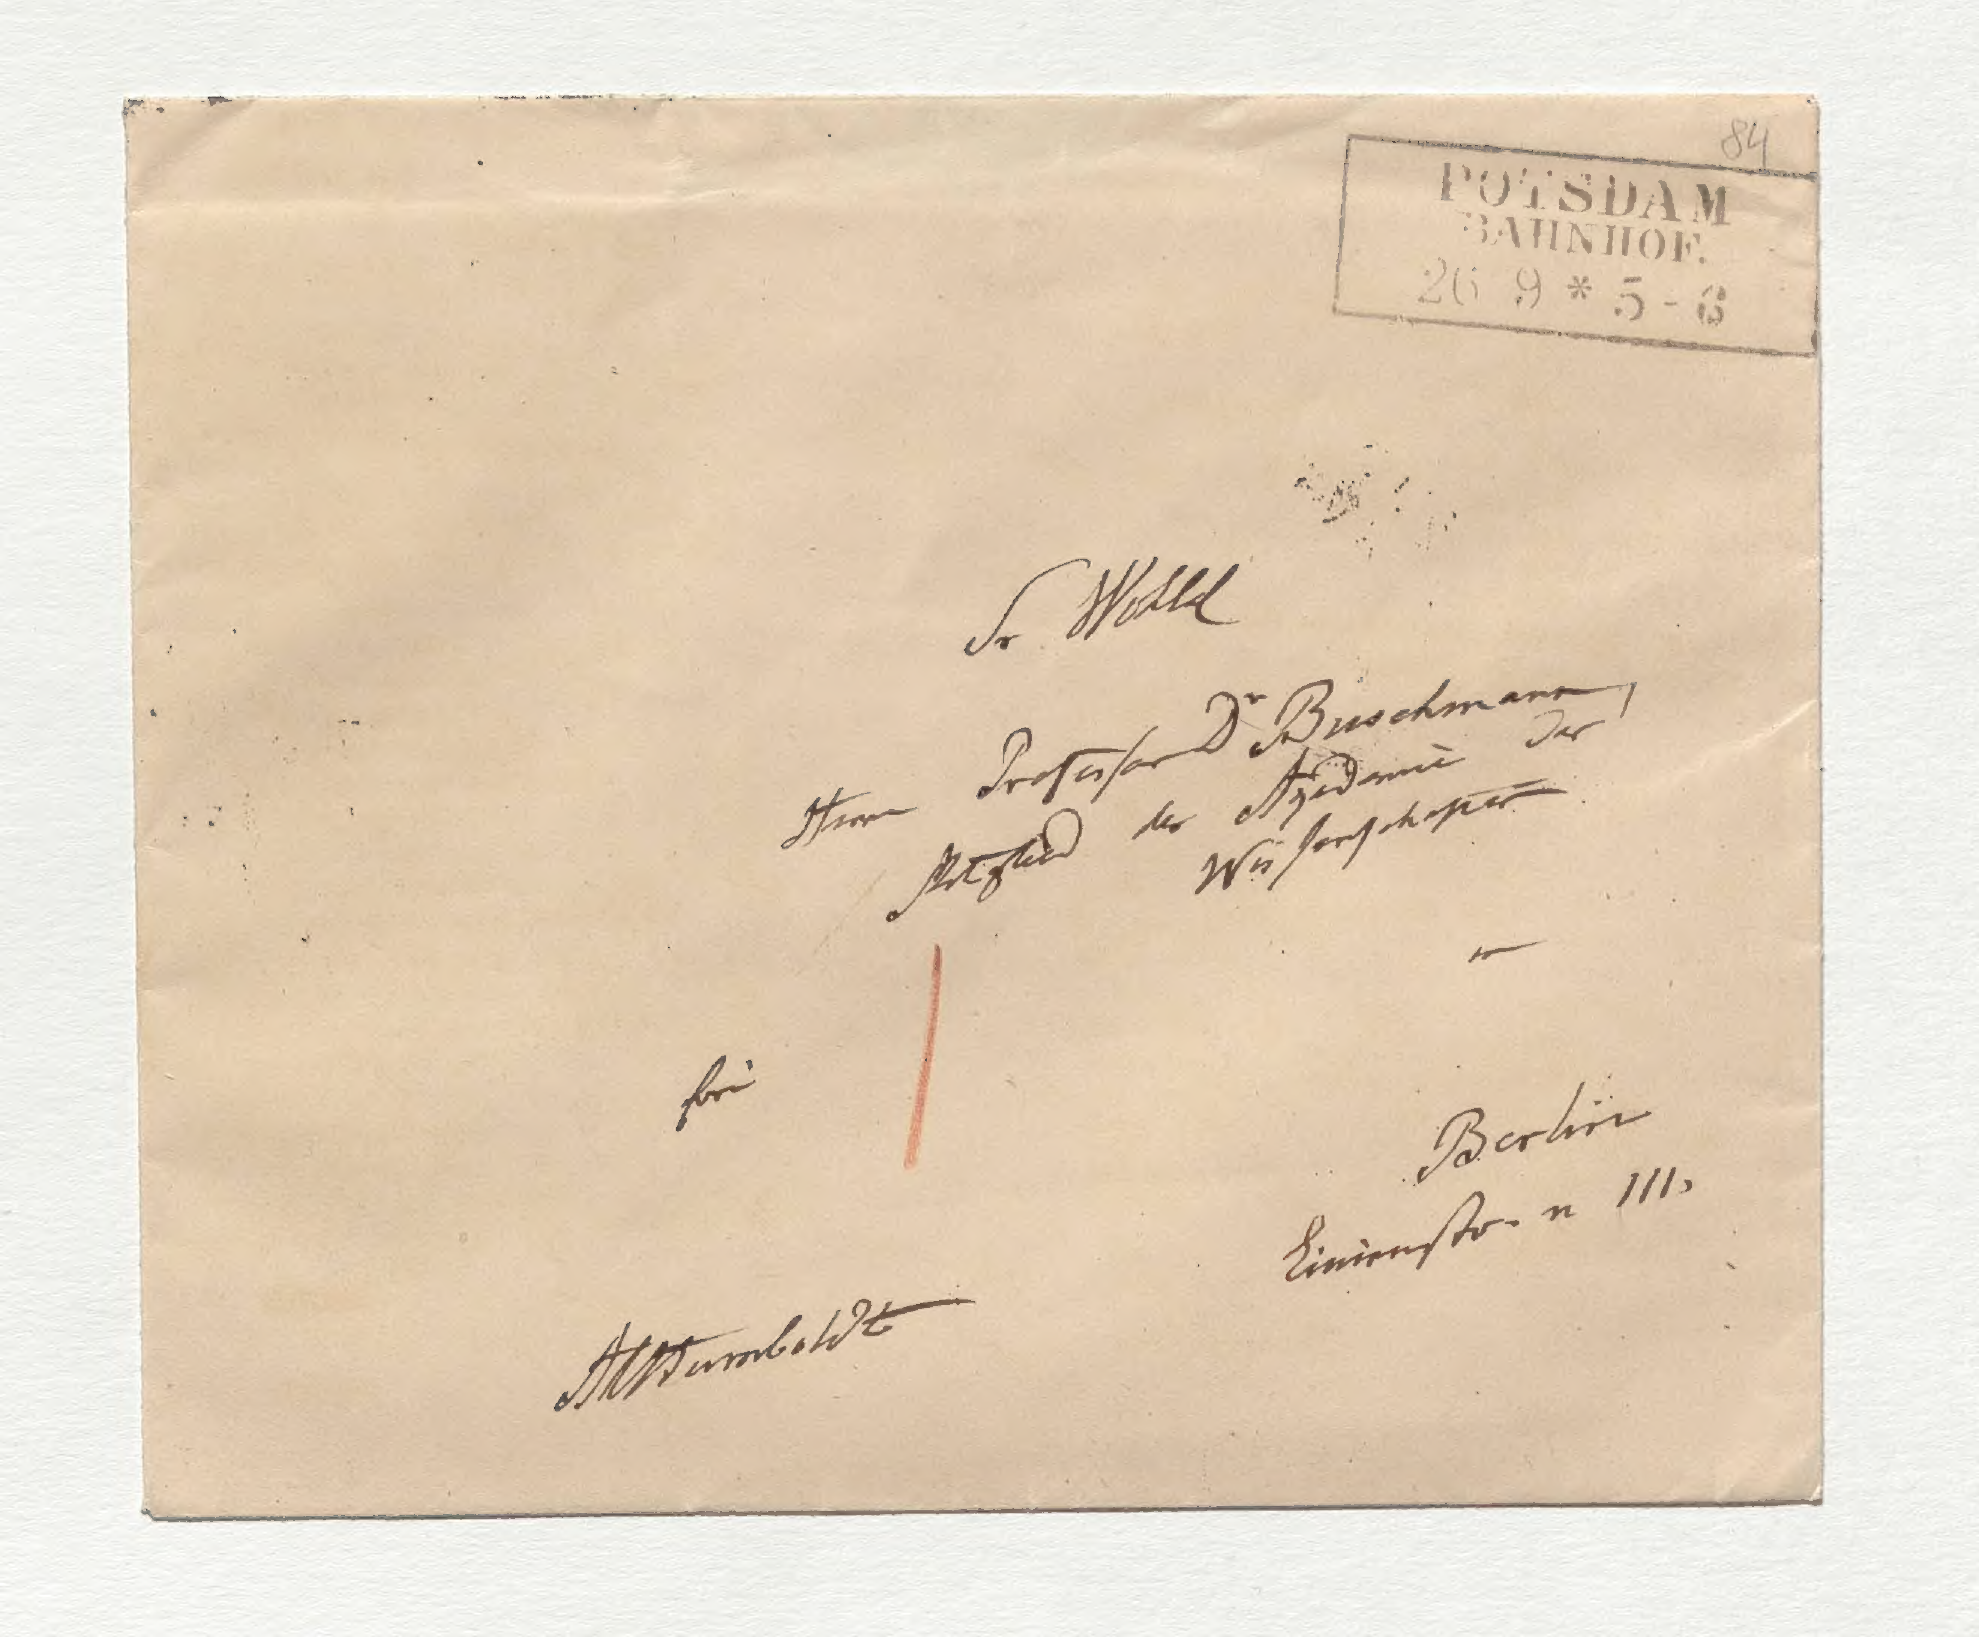 84
POTSDAM
BAHNHOF.
26 9 * 5-6
Sr Wohl
Herrn Professor Dr Buschmann,
Mitglied der Akademie der
Wissenschaften
in
frei
Berlin
Linienstr. n 111.
AlHumboldt